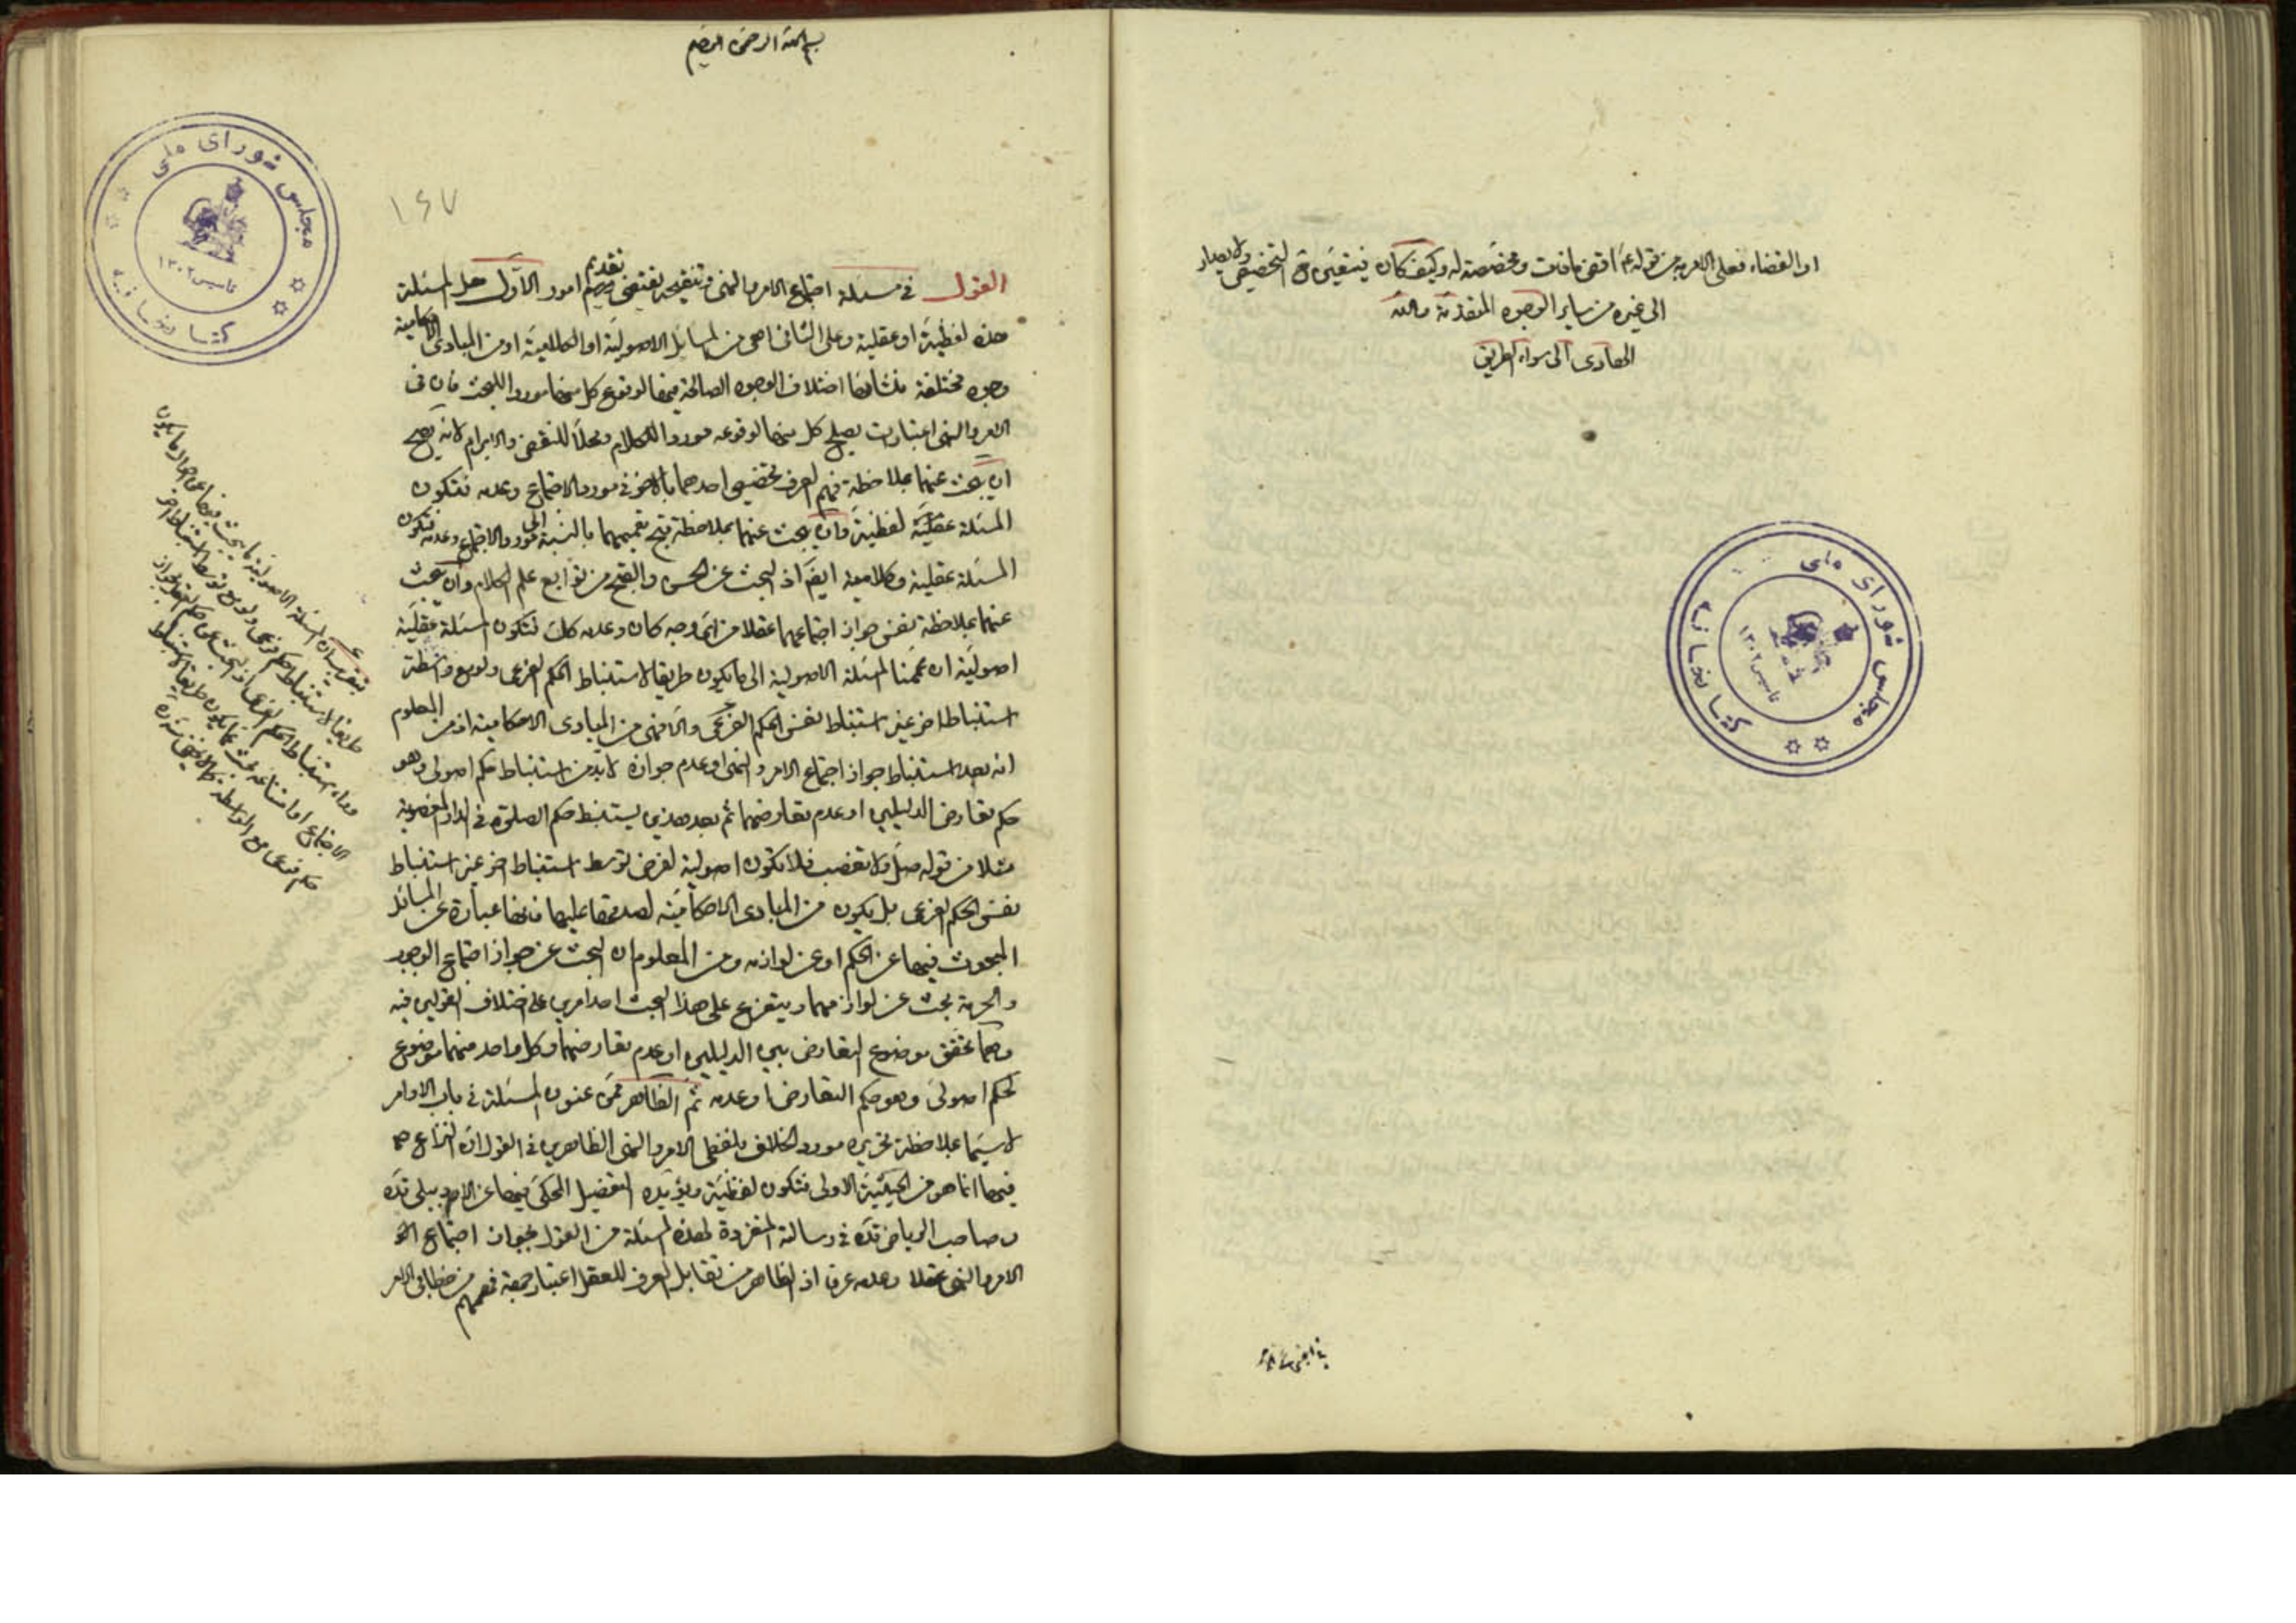 او القضاء فعلى الامر به من قوله عم اقض ما فات ومخصصة له وكيف كان فيتعين ح التخصيص ولا يصار
الى غيره من ساير الوجوه المتقدمة والله
الهادى الى سواء الطريق
بسم الله الرحمن الرحيم
١٤٧
القول فى مسئلة اجتماع الامر والنهى وتنقيحه يقتضى تقديم امور الاول هل المسئلة
هذه لفظية او عقلية وعلى الثانى اهى من المسائل الاصولية او الكلامية او من المبادى الاحكامية
وجوه مختلفة منشائها اختلاف الوجوه الصالحة فيها لوقوع كل منها موردا للبحث فان فى
الامر والنهى اعتبارات يصلح كل منها لوقوعه موردا للكلام ومحلا للنقض والابرام لانه يصح
ان يبحث عنهما بملاحظة فهم العرف تخصيص احدهما بالاخر فى مورد الاجتماع وعدمه فتكون
المسئلة لفظية وان يبحث عنهما بملاحظة قبح تعميمهما بالنسبة الى مورد الاجتماع وعدمه فتكون
المسئلة عقلية وكلامية ايض اذ البحث عن الحسن والقبح من توابع علم الكلام وان يبحث
عنهما بملاحظة نفس جواز اجتماعهما عقلا من اى وجه كان وعدمه كك فتكون المسئلة عقلية
اصولية ان عممنا المسئلة الاصولية الى ما يكون طريقا لاستنباط الحكم الفرعى ولو مع واسطة
استنباط اخر غير استنباط نفس الحكم الفرعى والا فهى من المبادى الاحكامية اذ من المعلوم
انه بعد استنباط جواز اجتماع الامر والنهى او عدم جوازه لابد من استنباط حكم اصولى وهو
حكم تعارض الدليلين او عدم تعارضهما ثم بعد هذين يستنبط حكم الصلوة فى الدار المغصوبة
مثلا من قوله صل ولا تغصب فلا تكون اصولية لفرض توسط استنباط اخر غير استنباط
نفس الحكم الفرعى بل يكون من المبادى الاحكامية لصدقها عليها فانها عبارة عن المسائل
المبحوث فيها عن الحكم او عن لوازمه ومن المعلوم ان البحث عن جواز اجتماع الوجوب
والحرمة بحث عن لوازمهما ويتفرع على هذا البحث احد امرين على اختلاف القولين فيه
وهما تحقق موضوع التعارض بين الدليلين او عدم تعارضهما وكل واحد منهما موضوع
لحكم اصولى وهو حكم التعارض وعدمه ثم الظاهر ممن عنون المسئلة فى باب الاوامر
لاسيما بملاحظة تحريره مورد الخلاف بلفظى الامر والنهى الظاهرين فى القول ان النزاع
فيها انما هو من الحيثية الاولى فتكون لفظية ويؤيده التفصيل المحكى فيها عن الاردبيلى قده
وصاحب الرياض قده فى رسالته المفردة لهذه المسئلة من القول بجواز اجتماع
الامر والنهى عقلا وعدمه عرفا اذ الظاهر من تقابل العرف للعقل اعتبار جهة فهمهم من خطابى الامر
مجلس شورای ملی
کتابخانه
تاسیس ۱۳۰۲
مجلس شورای ملی
کتابخانه
تاسیس ۱۳۰۲